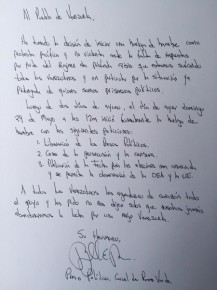 Al Pueblo de Venezuela.
He tomado la decisión de iniciar una huelga de hambre como
protesta pacífica y no violenta ante la falta de respuestas
por parte del Regimen de
todos los venezolanos y en particular por la situación ya
prolongada de quienes somos prisioneros políticos.
Luego de dos días de ayuno, el día de ayer domingo
24 de Mayo a las 12m inicié formalmente la huelga de
hambre con las siguientes peticiones:
1. Liberación de los Presos Políticos.
2. Cese de la persecución y la censura.
3. Fijación de la Fecha para las elecciones con
y se permita la observación de la OEA y la UE.
A todos los Venezolanos les agradezco de corazón todo
el apoyo y les pido no nos dejen solos que nosotros jamás
abandonaremos la lucha por una mejor Venezuela.
Su Hermano,
Preso Político, Cárcel de Ramo Verde